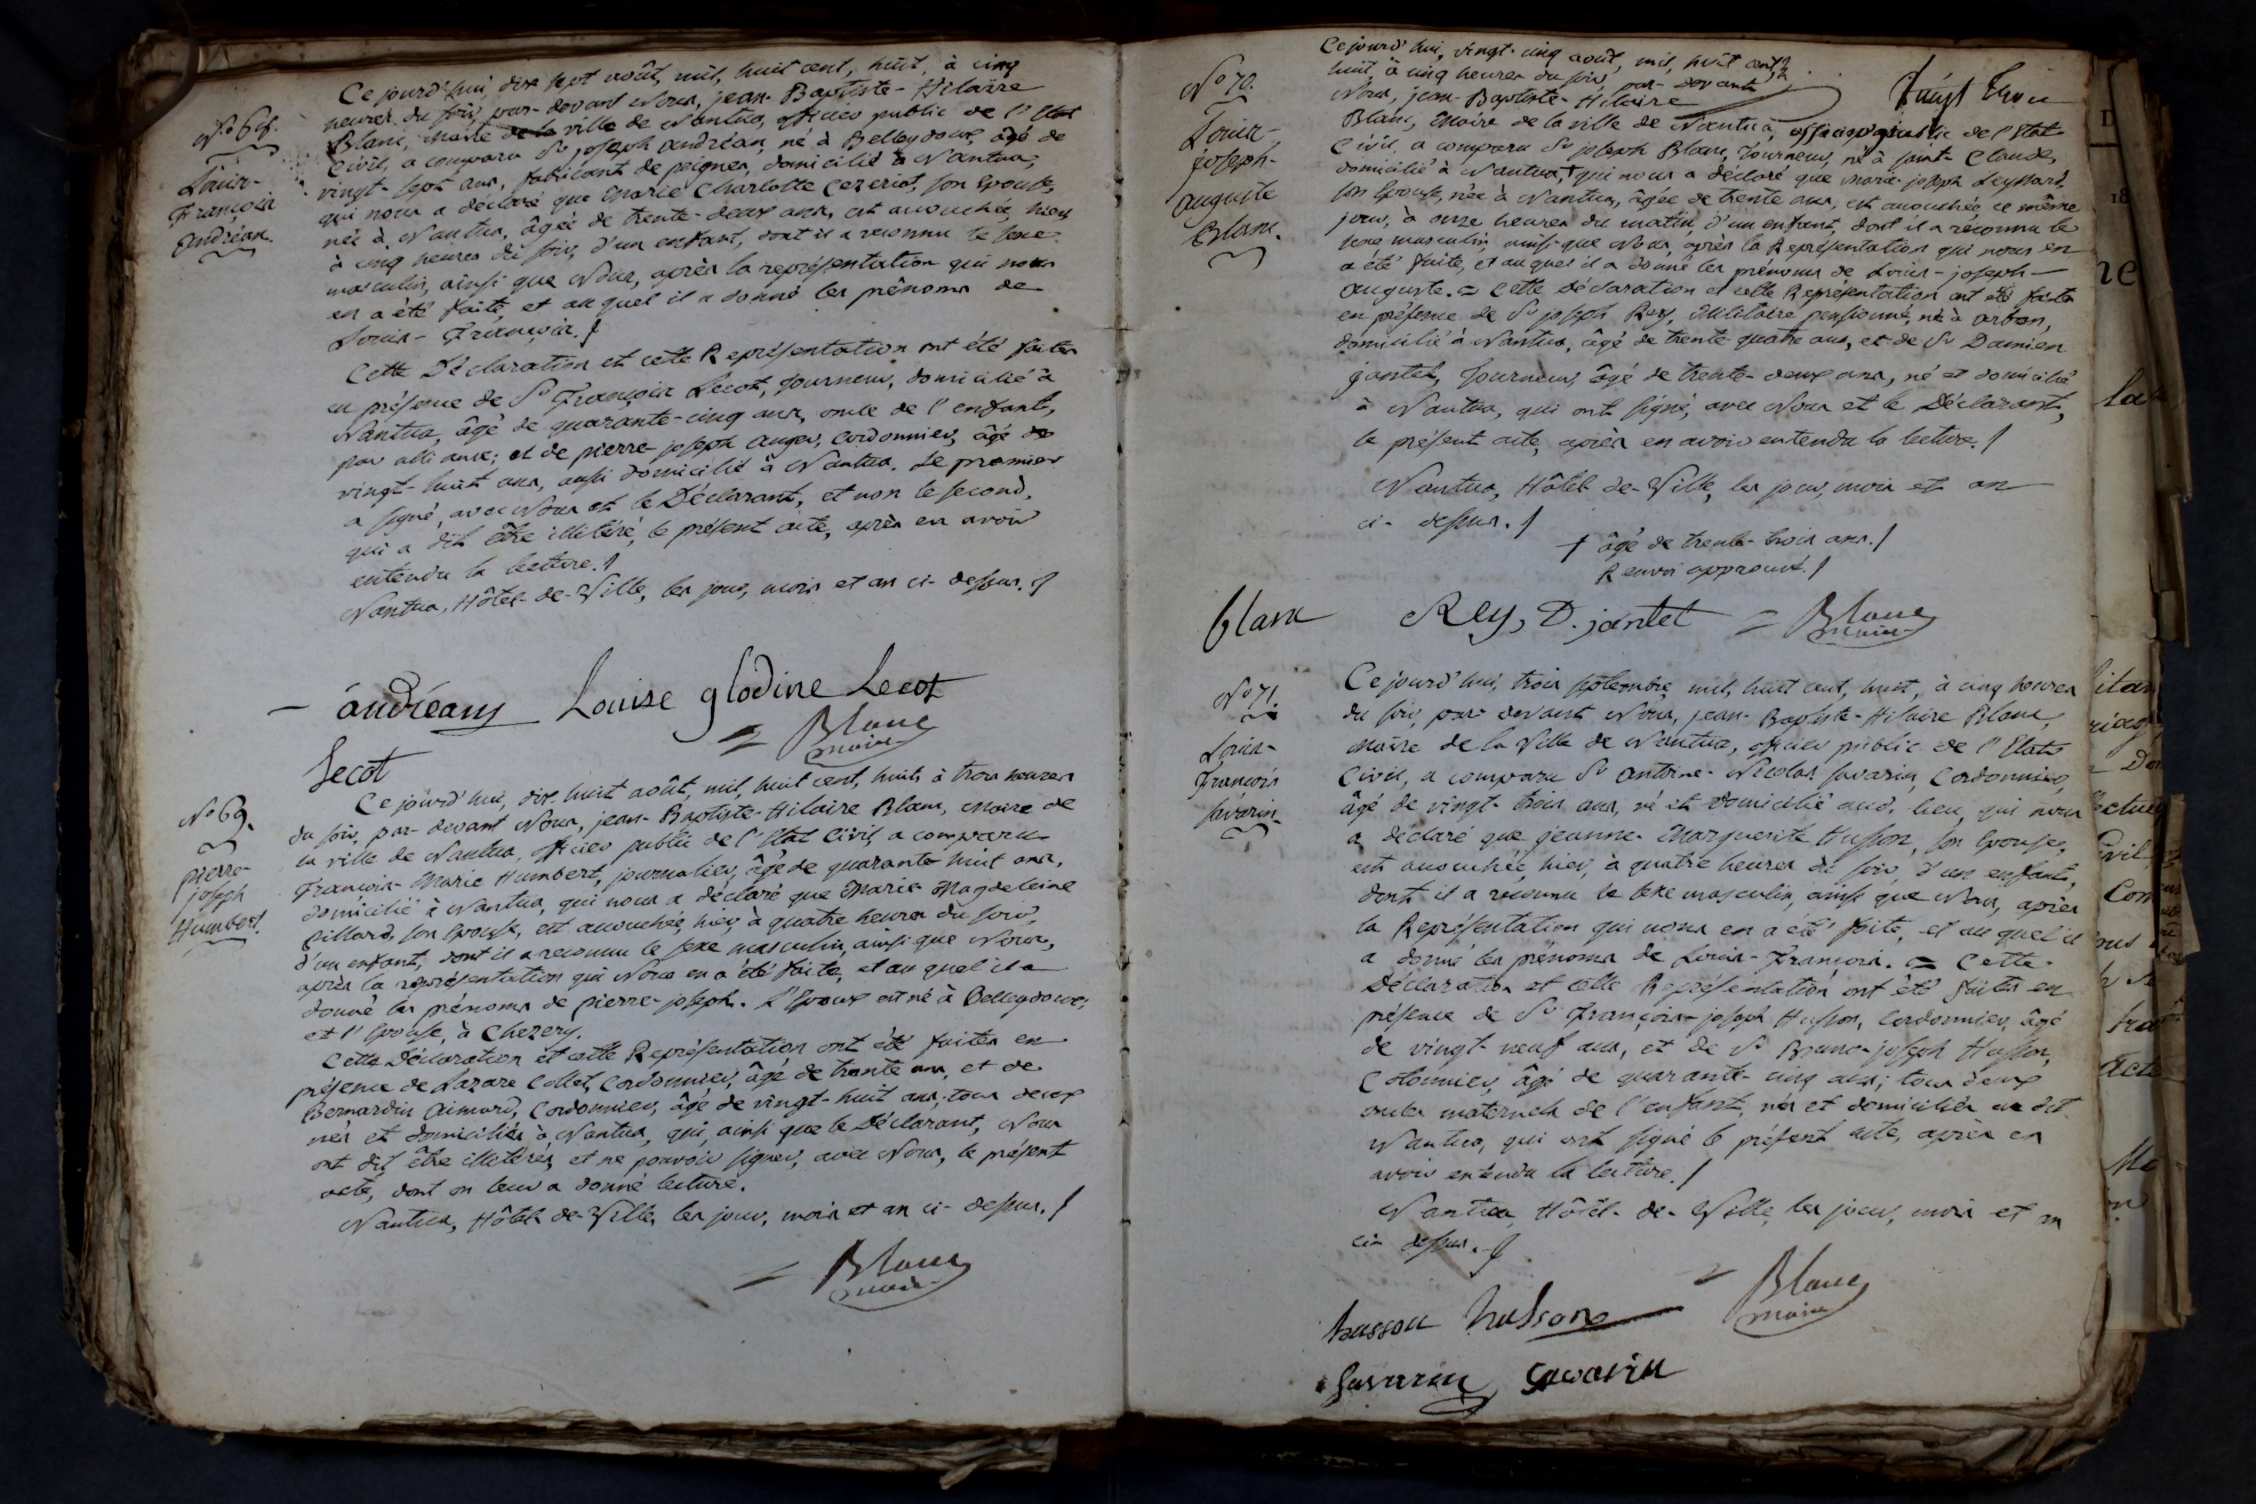 Ce jourd'hui, dix sept août, mil, huit cent, huit, à cinq
heures du soir, par-devant Nous, jean-Baptiste-Hilaire
Blanc, Maire de la ville de Nantua, officier public de l'Etat
Civil, a comparu Sr joseph andréan, né à Belleydoux, âgé de
vingt-sept ans, fabricant de peignes, domicilié à Nantua;
qui nous a déclaré que Marie Charlotte Cezeriat, son Epouse,
née à Nantua, âgée de trente-deux ans, est accouchée, hier,
à cinq heures du soir, d'un enfant, dont il a reconnu le sexe
masculin, ainsi que Nous, après la représentation qui nous
en a été faite, et au quel il a donné les prénoms de
Louis-François.
N° 68.
Louis-
François
andréan.
Cette Déclaration et cette Représentation ont été faites
en présence de Sr François Lecot, tourneur, domicilié à
Nantua, âgé de quarante-cinq ans, oncle de l'enfant,
par alliance; et de pierre joseph auger, Cordonnier, âgé de
vingt-huit ans, aussi domicilié à Nantua. Le premier
a signé, avec Nous et le Déclarant, et non le second,
qui a dit être illitéré, le présent acte, après en avoir
entendu la lecture.
Nantua, Hôtel-de-Ville, les jour, mois et an ci-dessus.
andréan Louise glodine Lecot
Blanc
maire
Lecot
N° 69.
pierre-
joseph
Humbert.
Ce jourd'hui, dix-huit août, mil, huit cent, huit, à trois heures
du soir, par-devant Nous, jean-Baptiste-Hilaire Blanc, Maire de
la ville de Nantua, officier public de l'Etat Civil, a comparu
François-Marie Humbert, journalier, âgé de quarante huit ans,
domicilié à Nantua, qui nous a déclaré que Marie Magdeleine
Gillard, son Epouse, est accouchée, hier, à quatre heures du soir,
d'un enfant, dont il a reconnu le sexe masculin, ainsi que Nous,
après la représentation qui Nous en a été faite, et au quel il a
donné les prénoms de pierre-joseph. L'Epoux est né à Belleydoux,
et l'Epouse, à Chezery.
Cette Déclaration et cette Représentation ont été faites en
présence de Lazare Collet, Cordonnier, âgé de trente ans, et de
Bernardin Aimard, Cordonnier, âgé de vingt-huit ans; tous deux
nés et domiciliés à Nantua, qui, ainsi que le Déclarant, Nous
ont dit être illitérés, et ne pouvoir signer, avec Nous, le présent
acte, dont on leur a donné lecture.
Nantua, Hôtel-de-Ville, les jour, mois et an ci-dessus.
Blanc
maire
N° 70.
Louis-
joseph-
auguste
Blanc.
Ce jourd'hui, vingt-cinq août, mil, huit cent,
huit, à cinq heures du soir, par-devant
Nous, jean-Baptiste-Hilaire
Blanc, Maire de la ville de Nantua, officier public de l'Etat
Civil, a comparu Sr joseph Blanc, tourneur, né à saint-Claude,
domicilié à Nantua, qui nous a déclaré que Marie joseph Leyssard,
son Epouse, née à Nantua, âgée de trente ans, est accouchée ce même
jour, à onze heures du matin, d'un enfant, dont il a reconnu le
sexe masculin, ainsi que Nous, après la Représentation qui nous en
a été faite, et au quel il a donné les prénoms de Louis-joseph-
auguste. = Cette Déclaration et cette Représentation ont été faites
en présence de Sr joseph Rey, Militaire pensionné, né à arban,
domicilié à Nantua, âgé de trente quatre ans, et de Sr Damien
jantet, Tourneur, âgé de trente-deux ans, né et domicilié
à Nantua, qui ont signé, avec Nous et le Déclarant,
le présent acte, après en avoir entendu la lecture.
Nantua, Hôtel-de-Ville, les jour, mois et an
ci-dessus.
âgé de trente-trois ans.
Renvoi approuvé.
blanc Rey, D. jantet Blanc
maire
N° 71.
Louis-
François
Savarin.
Ce jourd'hui, trois septembre, mil, huit cent, huit, à cinq heures
du soir, par-devant Nous, jean-Baptiste-Hilaire Blanc,
Maire de la Ville de Nantua, officier public de l'Etat
Civil, a comparu Sr Antoine-Nicolas Savarin, Cordonnier,
âgé de vingt-trois ans, né et domicilié aud. lieu, qui nous
a déclaré que jeanne-Marguerite Husson, son Epouse,
est accouchée, hier, à quatre heures du soir, d'un enfant,
dont il a reconnu le sexe masculin, ainsi que Nous, après
la Représentation qui nous en a été faite, et au quel il
a donné les prénoms de Louis-François. = Cette
Déclaration et cette Représentation ont été faites en
présence de Sr François-joseph Husson, Cordonnier, âgé
de vingt-neuf ans, et de Sr Bruno-joseph Husson,
Cotonnier, âgé de quarante-cinq ans; tous deux
oncles maternels de l'enfant, nés et domiciliés au dit
Nantua, qui ont signé le présent acte, après en
avoir entendu la lecture.
Nantua, Hôtel-de-Ville, les jour, mois et an
ci-dessus.
husson husson Blanc
maire
Savarin Savarin